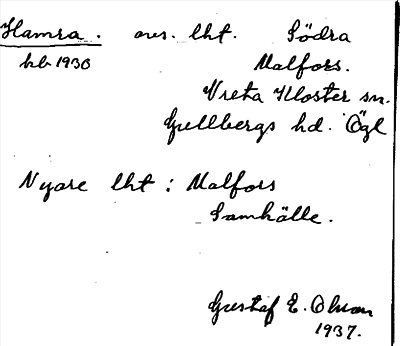 Hamra. avs. lht. Södra
hb 1930 Malfors.
Vreta Kloster sn.
Gullbergs hd. Ögl
Nyare lht : Malfors
Samhälle.
Gustaf E. Olson
1937.